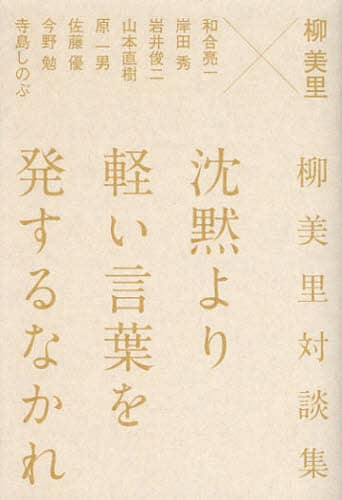 柳美里
和合亮一
岸田 秀
岩井俊二
山本直樹
原 一男
佐藤 優
今野 勉
寺島しのぶ
柳美里対談集
沈黙より
軽い言葉を
発するなかれ